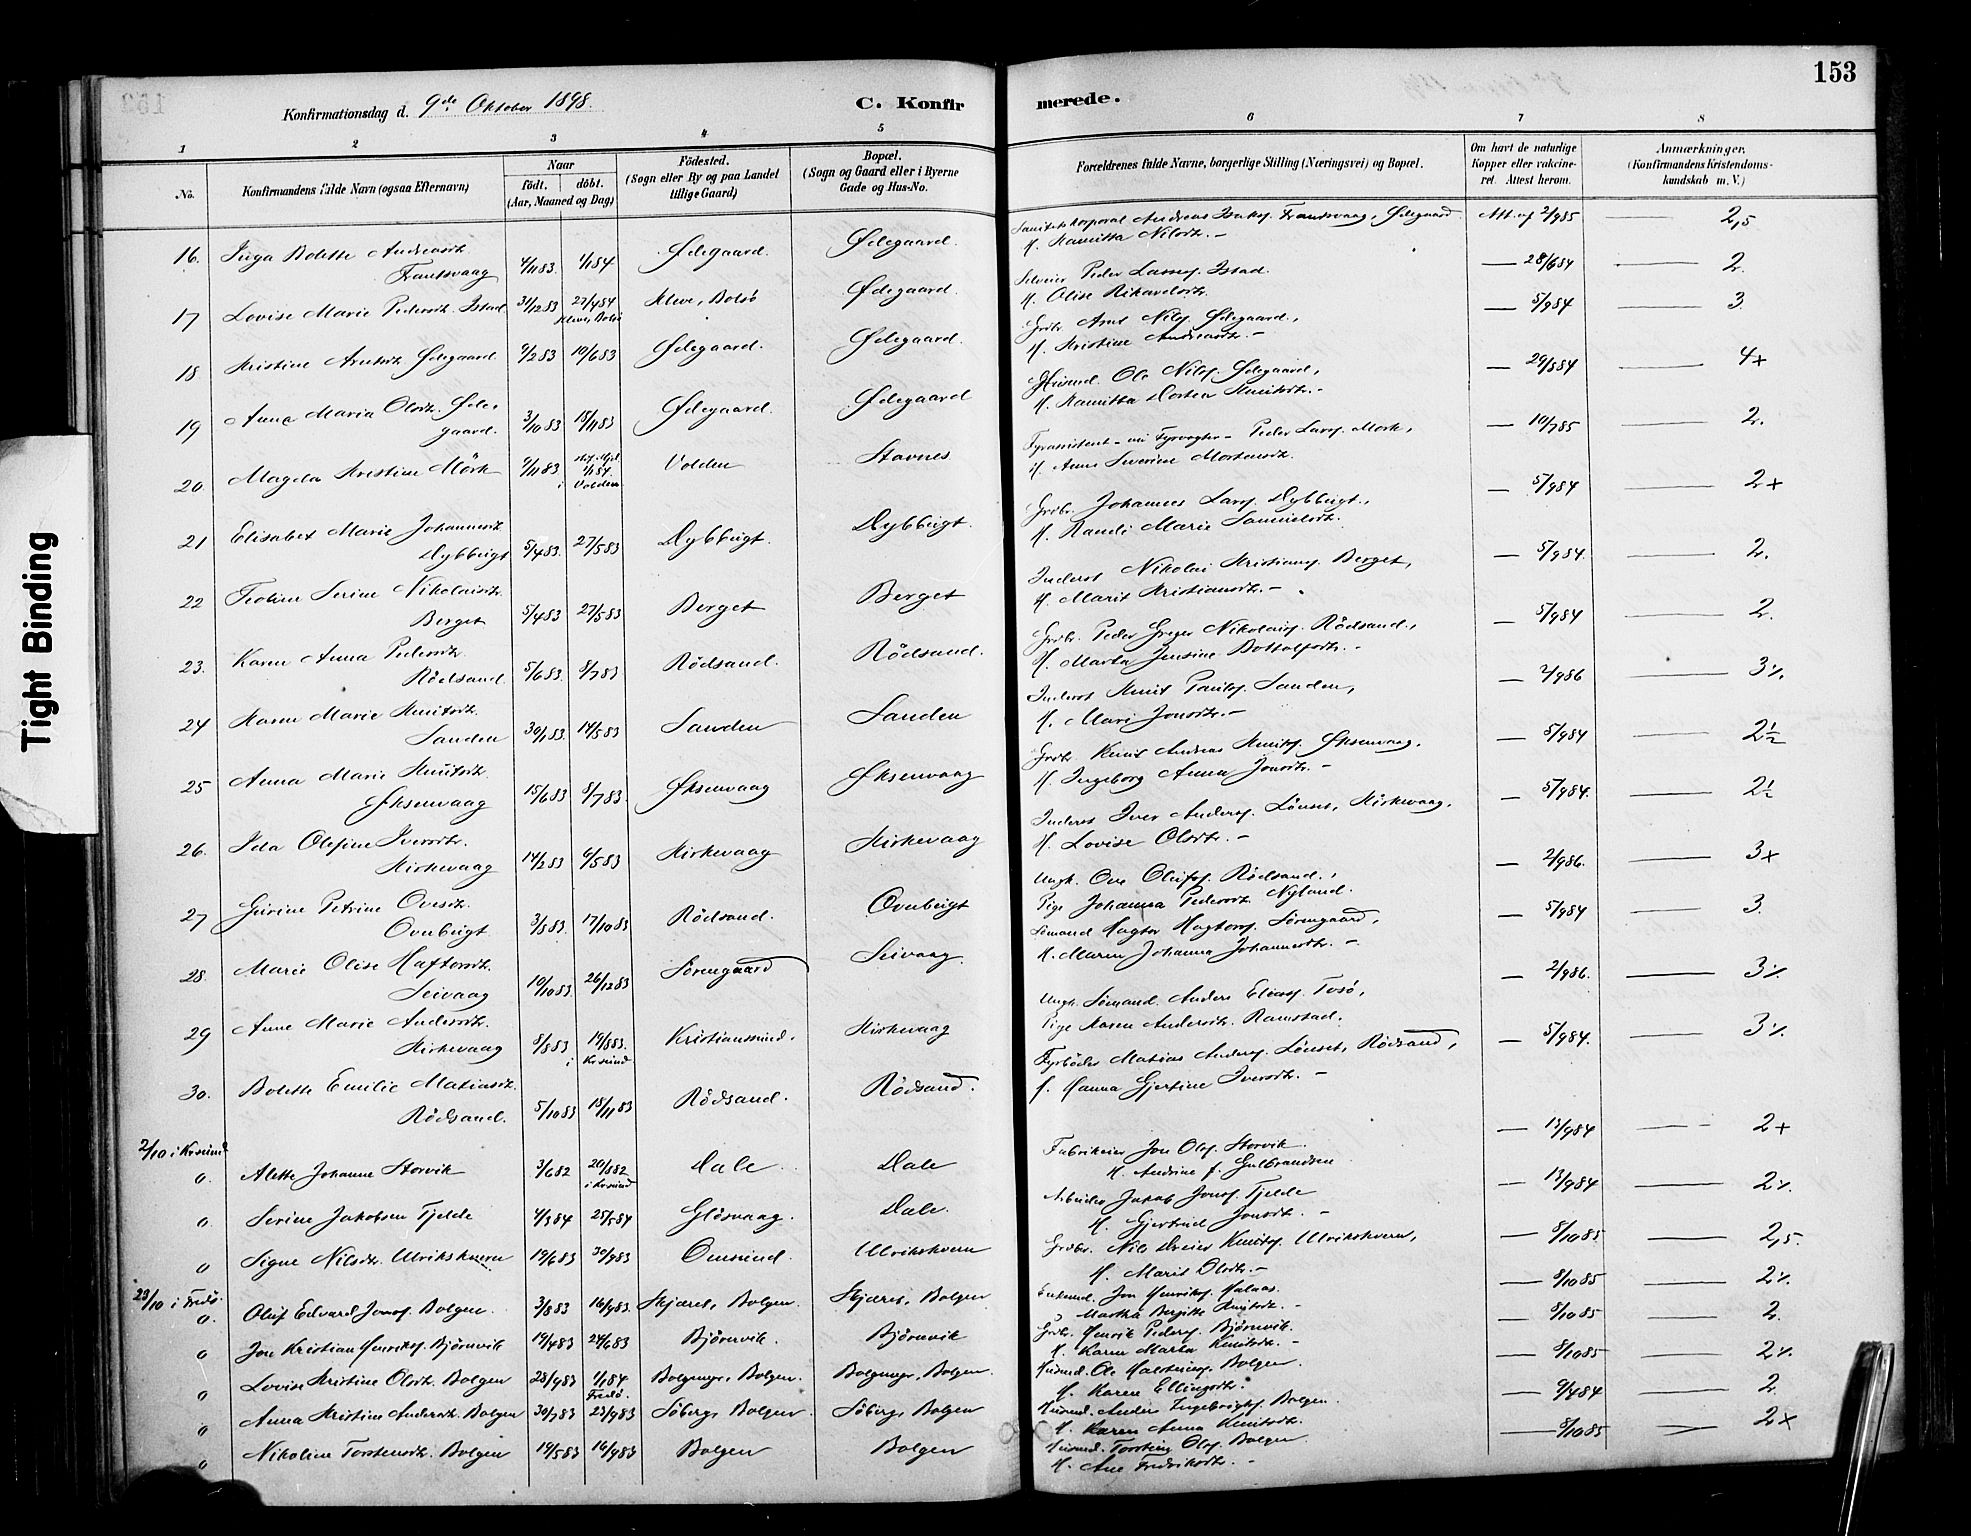 153
Konfirmationsdag d. 9de Oktober 1898. C. Konfirmerede.
1 2 3 4 5 6 7 8
No. Konfirmandens fulde Navn (ogsaa Efternavn) Naar födt. döbt. (Aar, Maaned og Dag) Födested. (Sogn eller By og paa Landet tillige Gaard) Bopæl. (Sogn og Gaard eller i Byerne Gade og Hus-No. Forældrenes fulde Navne, borgerlige Stilling (Næringsvei) og Bopæl. Om havt de naturlige Kopper eller vakcineret. Attest herom. Anmærkninger. (Konfirmandens Kristendomskundskab m. V.)
16. Inga Bolette Andreasdtr. Frantsvaag 4/11 83. 1/1 84 Ødegaard. Ødegaard. Sanitetskorporal Andreas Isaks. Frantsvaag, Ødegaard
H. Hanitta Nilsdtr. – Att. af 2/9 85 — 2,5
17 Lovise Marie Pedersdtr. Istad 31/12 83 27/4 84 Kleve, Bolsö Kleve, Bolsö Ødegaard. Peder Lasses. Istad.
H. Olise Rikardsdtr. — 28/6 84 — 2.
18. Kristine Arntsdtr. Ødegaard 9/2 83 10/6 83 Ødegaard. Ødegaard. Grdbr. Arnt Nils. Ødegaard,
H. Kristine Andreasdtr. – — 5/9 84 — 3.
19 Anna Maria Olsdtr. Ødegaard. 3/10 83 18/11 83 Ødegaard. Ødegaard Husmd. Ole Nils. Ødegaard,
H. Hanitta Dortea Knutsdtr. – — 29/8 84 — 4x
20. Magda Kristine Mörk 9/11 83 1/1 84 i Volden Volden Stavnes Fyrassistent – nu Fyrvogter – Peder Lars. Mork,
H. Anne Severine Mortensdtr. — 10/7 85 — 2.
21 Elisabet Marie Johannesdtr. Dybbugt 5/4 83. 27/5 83 Dybbugt. Dybbugt. Grdbr. Johannes Lars. Dybbugt,
H. Randi Marie Samuelsdtr. — 5/9 84 — 2x
22 Teoline Serine Nikolaisdtr. Berget 5/4 83 27/5 83 Berget Berget Inderst Nikolai Kristians. Berget,
H. Marit Kristiansdtr. – — 5/9 84. — 2.
23. Karen Anna Pedersdtr. Rödsand. 5/6 83. 8/7 83 Rödsand. Rödsand. Grdbr. Peder Greger Nikolais. Rödsand,
H. Marta Jensine Bottolfsdtr. – — 5/9 84 — 2.
24 Karen Marie Knutsdtr. Sanden 30/1 83. 14/5 83 Sanden Sanden Inderst Knut Pauls. Sanden,
H. Mari Jonsdtr. – — 2/9 86 — 3%
25 Anna Marie Knutsdtr. Øksenvaag 15/6 83 8/7 83. Øksenvaag Øksenvaag Grdbr. Knut Andreas Knuts. Øksenvaag,
H. Ingeborg Anna Jonsdtr. – — 5/9 84 — 2½
26. Ida Olefine Iversdtr. Kirkevaag 14/2 83 6/5 83 Kirkevaag Kirkevaag Inderst Iver Anders. Lönset, Kirkevaag,
H. Lovise Olsdtr. – — 5/9 84. — 2½
27 Gurine Petrine Ovesdtr. Ovnbugt. 3/8 83. 17/10 83 Rödsand. Ovnbugt Ungk. Ove Olufs. Rödsand,
Pige Johanna Pedersdtr. Nyland. — 2/9 86. — 3x
28. Marie Olise Haftorsdtr. Seivaag 10/10 83. 26/12 83 Sörengaard Seivaag. Sömand Hagtor Hagtors. Sörengaard,
H. Maren Johanna Johannesdtr. – — 5/9 84 — 3.
29 Anne Marie Andersdtr. Kirkevaag 8/8 83 i 19/8 83. Krsund. Kristianssund. Kirkevaag Ungk. Sömand. Anders Elias. Tosö,
Pige Karen Andersdtr. Ramstad. — 2/9 86. — 3%
30. Bolette Emilie Matiasdtr. Rödsand. 5/10 83 18/11 83 Rödsand. Rödsand. Fyrböder Matias Anders. Lönset, Rödsand,
H. Hanna Gjertine Iversdtr. – — 5/9 84. — 3%
2/10 i Krsund
o. Alette Johanne Storvik 3/6 82 20/8 82 i Krsund Dale Dale Fabrikeier Jon Ols. Storvik.
H. Andrine f. Gulbrandsen — 13/9 84 — 2x
o. Serine Jakobsen Tjelde 4/3 84 25/5 84 Glösvaag. Dale. Arbeider Jakob Jons. Tjelde
H. Gjertrud Jonsdtr. – — 13/9 84 — 2%
o Signe Nilsdtr. Ulrikskvern 19/6 83 30/9 83 Omsund. Ulrikskvern Grdbr. Nils Dreier Knuts. Ulrikskvern,
H. Marit Olsdtr. – — 8/10 85 — 2,5.
23/10 i Fredö.
o. Oluf Edvard Jons. Bolgen. 3/8 83 16/9 83. Skjæret, Bolgen. Skjæret, Bolgen Jon Henriks. Halaas.
Martha Bergitte Knutsdtr. – — 8/10 85 — 2%
o Jon Kristian Henriks. Björnvik 19/4 83 24/6 83 Björnvik Björnvik Grdbr. Henrik Peders. Björnvik.
H. Karen Marta Knutsdtr. – — 8/10 85 — 2.
o Lovise Kristine Olsdtr. Bolgen 28/9 83 1/1 84 Fredö. Bolgmyr, Bolgen. Bolgmyr, Bolgen Husmd. Ole Halstens. Bolgen.
H. Karen Ellingsdtr. — 8/10 85 — 2%
o Anna Kristine Andersdtr. Bolgen 30/7 83 23/9 83 Söberg, Bolgen. Söberg, Bolgen Husmd. Anders Ingebrigts. Bolgen.
H. Karen Anna Knutsdtr. — 9/4 84 — 2.
o Nikoline Torstensdtr. Bolgen 19/5 83 16/9 83 Bolgen Bolgen Husmd. Torsten Ols. Bolgen
H. Ane Fredriksdtr. – — 8/10 85 — 2x
Tight Binding